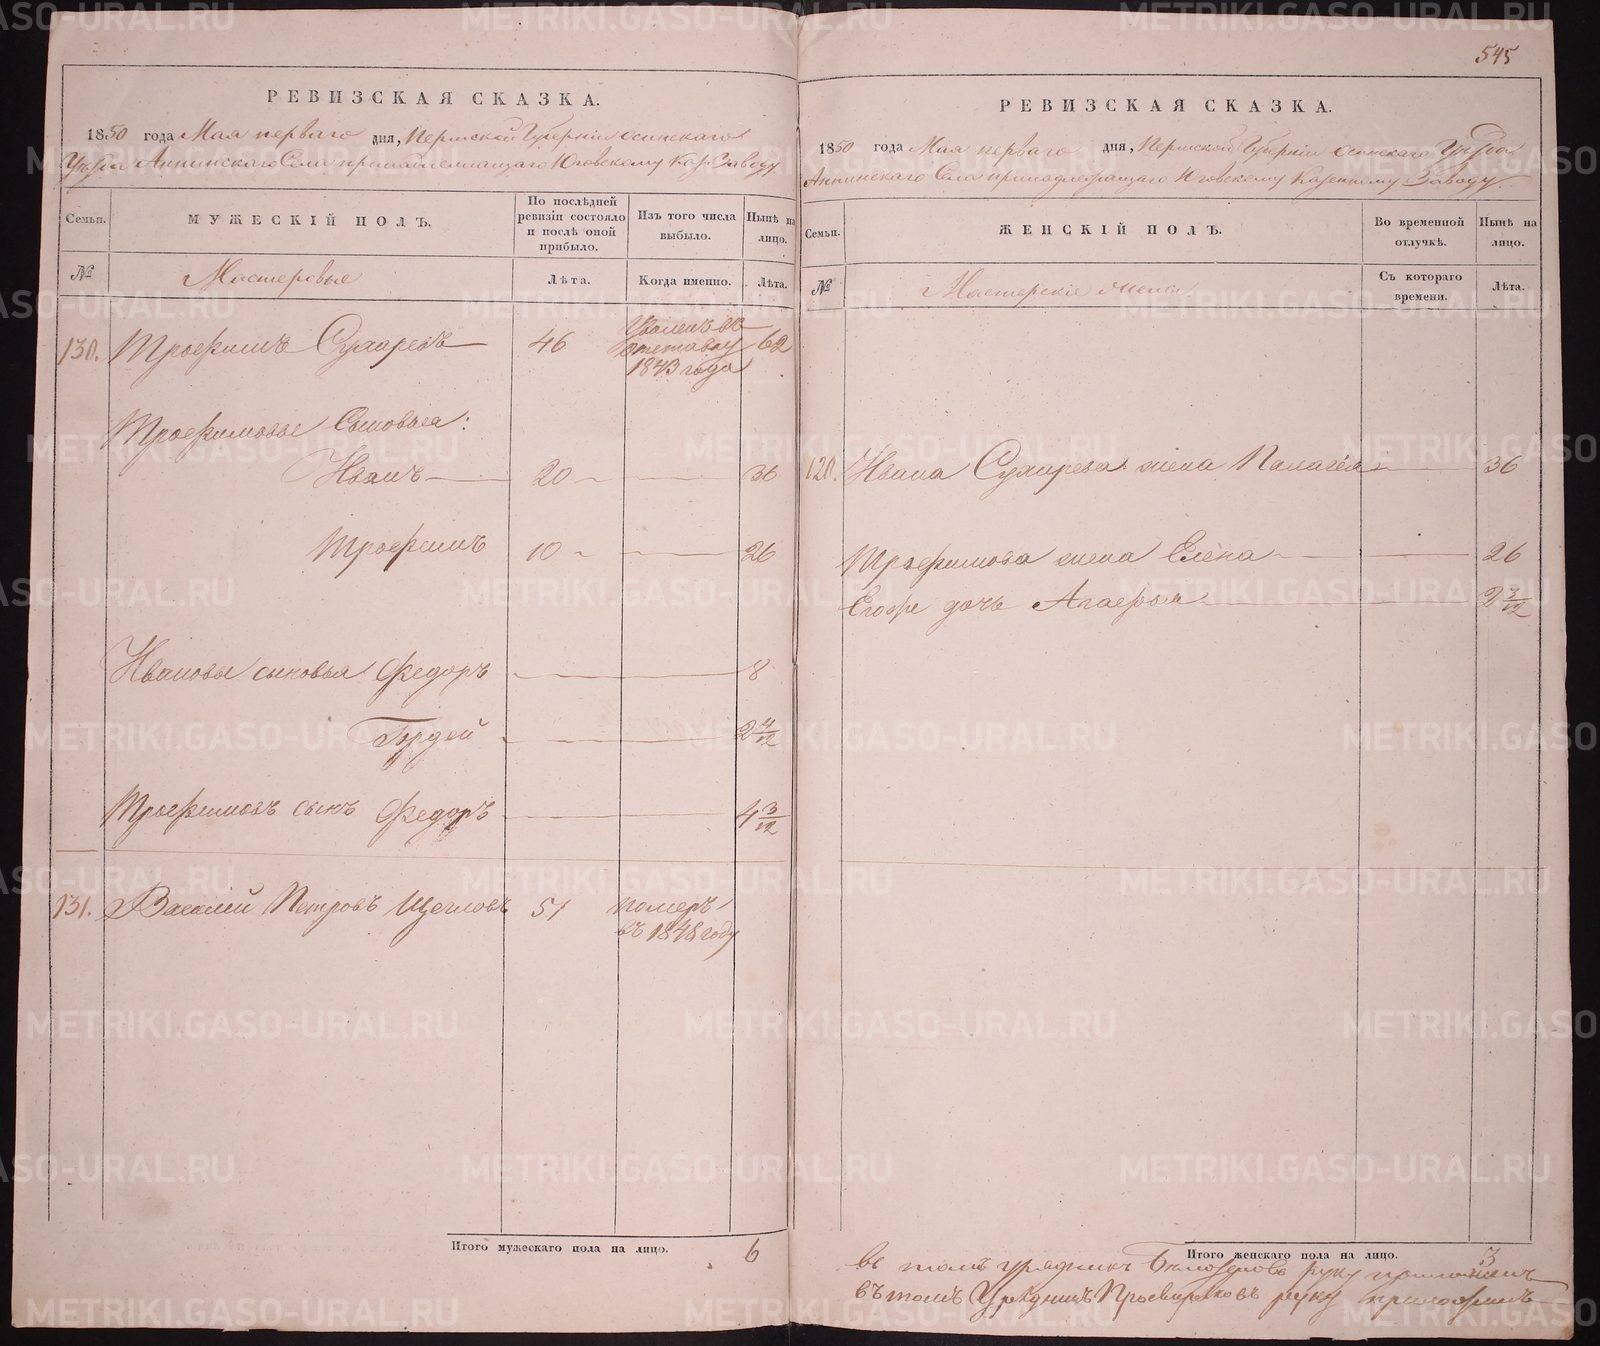 545
РЕВИЗСКАЯ СКАЗКА.
1850 года Мая перваго дня, Пермской Губерніи Осинскаго
Уѣзда Аннинскаго Села принадлежащаго Юговскому Каз. Заводу
Семьи. МУЖЕСКІЙ ПОЛЪ. По послѣдней ревизіи состояло и послѣ оной прибыло. Изъ того числа выбыло. Нынѣ на лицо.
№ Мастеровые Лѣта. Когда именно. Лѣта.
130. Трофимъ Сухаревъ 46 Уволенъ въ отставку 1843 года 62
Трофимовы Сыновья:
Иванъ 20 36
Трофимъ 10 26
Ивановы сыновья Федоръ 8
Гордей 2 4/12
Трофимовъ сынъ Федоръ 4 3/12
131. Василій Петровъ Щегловъ 51 померъ въ 1848 году
Итого мужескаго пола на лицо. 6
РЕВИЗСКАЯ СКАЗКА.
1850 года Мая перваго дня, Пермской Губерніи Осинскаго Уѣзда
Аннинскаго Села принадлежащаго Юговскому Казенному Заводу.
Семьи. ЖЕНСКІЙ ПОЛЪ. Во временной отлучкѣ. Нынѣ на лицо.
№ Мастерскіе жены Съ котораго времени. Лѣта.
Ивана Сухарева жена Палагѣя 36
Трофимова жена Елена 26
дочь 2 3/12
Итого женскаго пола на лицо. 3
въ томъ урядникъ руку приложилъ
въ томъ Урядникъ руку приложилъ
METRIKI.GASO-URAL.RU